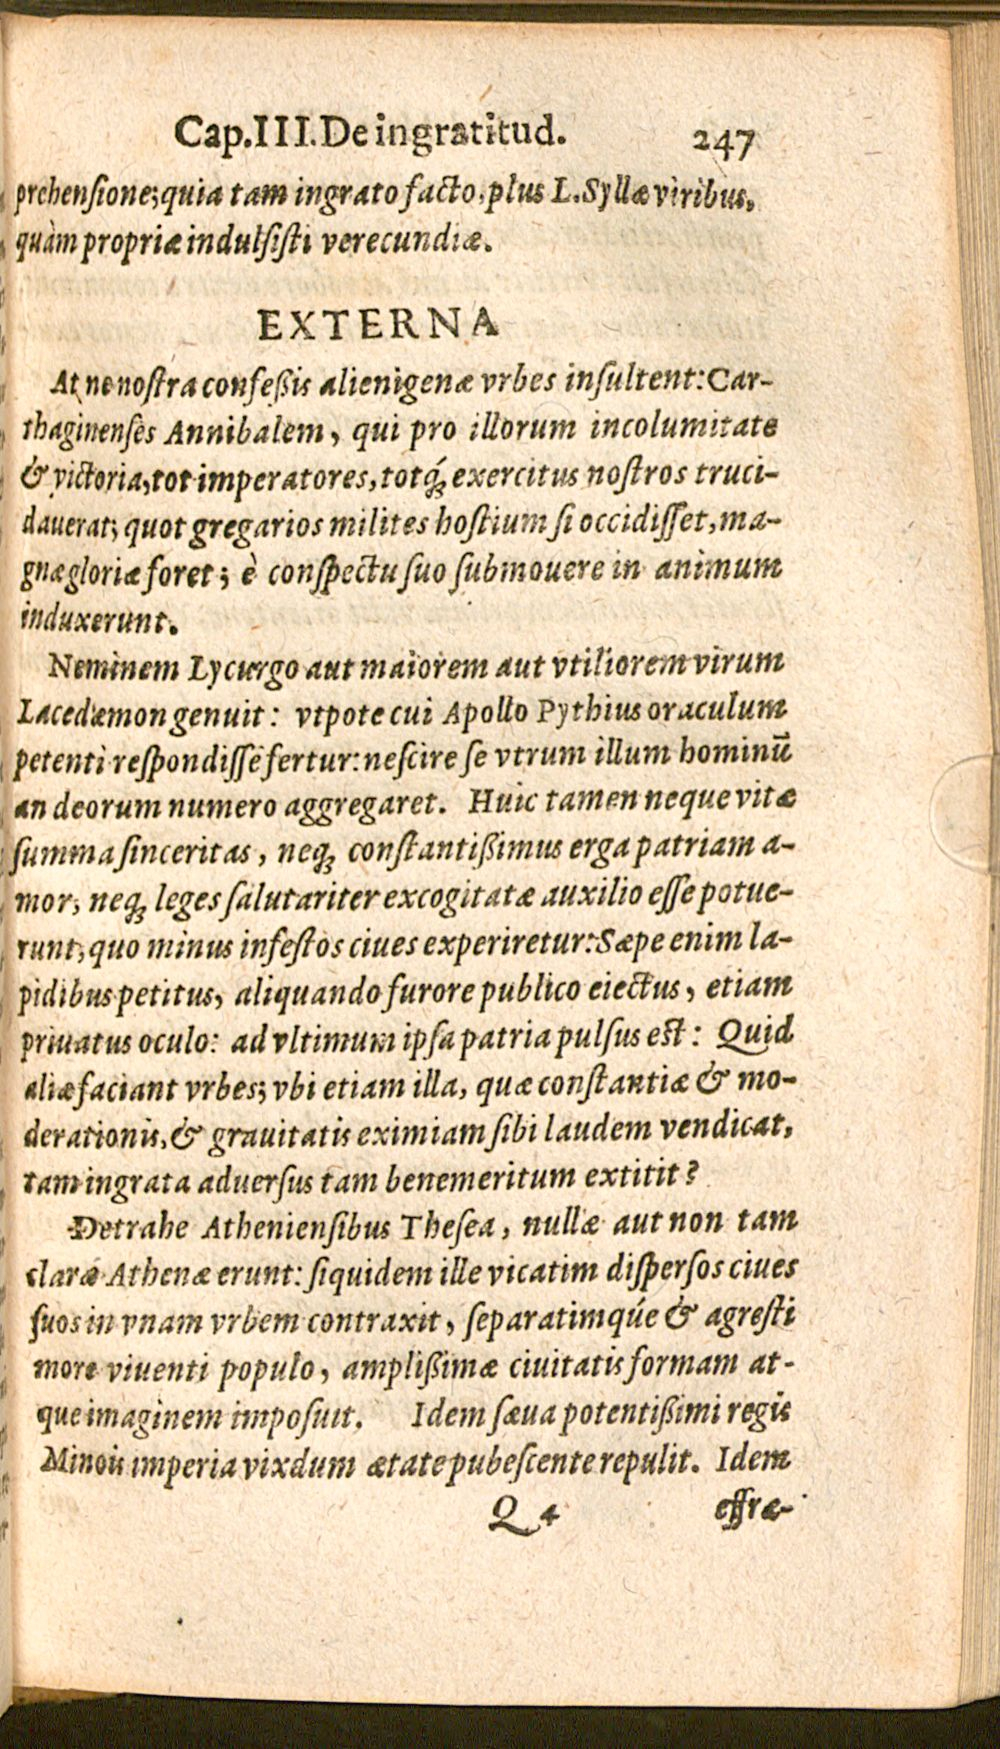 Cap.III.De ingratitud. 247
prehensione; quia tam ingrato facto, plus L. Syllæ viribus,
quàm propriæ indulsisti verecundiæ.
EXTERNA
At ne nostra confeßis alienigenæ vrbes insultent: Car-
thaginenses Annibalem, qui pro illorum incolumitate
& victoria, tot imperatores, totq́; exercitus nostros truci-
dauerat; quot gregarios milites hostium si occidisset, ma-
gnæ gloriæ foret; è conspectu suo submouere in animum
induxerunt.
Neminem Lycurgo aut maiorem aut vtiliorem virum
Lacedæmon genuit: vtpote cui Apollo Pythius oraculum
petenti respondisse fertur: nescire se vtrum illum hominū
an deorum numero aggregaret. Huic tamen neque vitæ
summa sinceritas, neq; constantißimus erga patriam a-
mor, neq; leges salutariter excogitatæ auxilio esse potue-
runt, quo minus infestos ciues experiretur: Sæpe enim la-
pidibus petitus, aliquando furore publico eiectus, etiam
priuatus oculo: ad vltimum ipsa patria pulsus est: Quid
aliæ faciant vrbes; vbi etiam illa, quæ constantiæ & mo-
derationis, & grauitatis eximiam sibi laudem vendicat,
tam ingrata aduersus tam benemeritum extitit?
Detrahe Atheniensibus Thesea, nullæ aut non tam
claræ Athenæ erunt: siquidem ille vicatim dispersos ciues
suos in vnam vrbem contraxit, separatimqúe & agresti
more viuenti populo, amplißimæ ciuitatis formam at-
que imaginem imposuit. Idem sæua potentißimi regis
Minois imperia vixdum ætate pubescente repulit. Idem
Q 4 effræ-